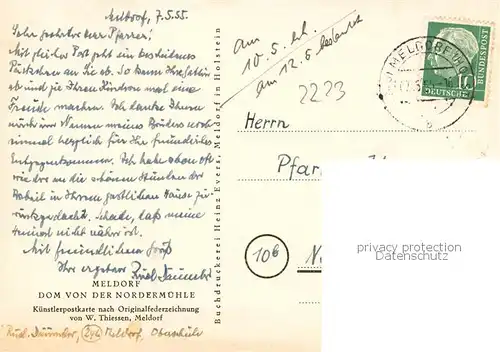 Meldorf, 7.5.55.
Sehr geehrter Herr Pfarrer!
Mit gleicher Post geht ein bescheidenes
Päckchen an Sie ab. So kann Ihre Gattin
ab und zu Ihren Kindern mal eine
Freude machen. Ich danke Ihnen
noch im Namen meines Bruders noch
einmal herzlich für Ihr freundliches
Entgegenkommen. Ich habe schon oft
wieder an die schönen Stunden der
Arbeit in Ihrem gastlichen Hause zu-
rückgedacht. Schade, daß meine
nicht näher ist.
Mit freundlichem Gruß
Ihr ergebener
MELDORF
DOM VON DER NORDERMÜHLE
Künstlerpostkarte nach Originalfederzeichnung
von W. Thiessen, Meldorf
Meldorf,
Buchdruckerei Heinz Evers, Meldorf in Holstein
am
10.5.
am 12.6
2223
MELDORF
DEUTSCHE
BUNDESPOST
10
Herrn
Pfar
10b
N
privacy protection
Datenschutz